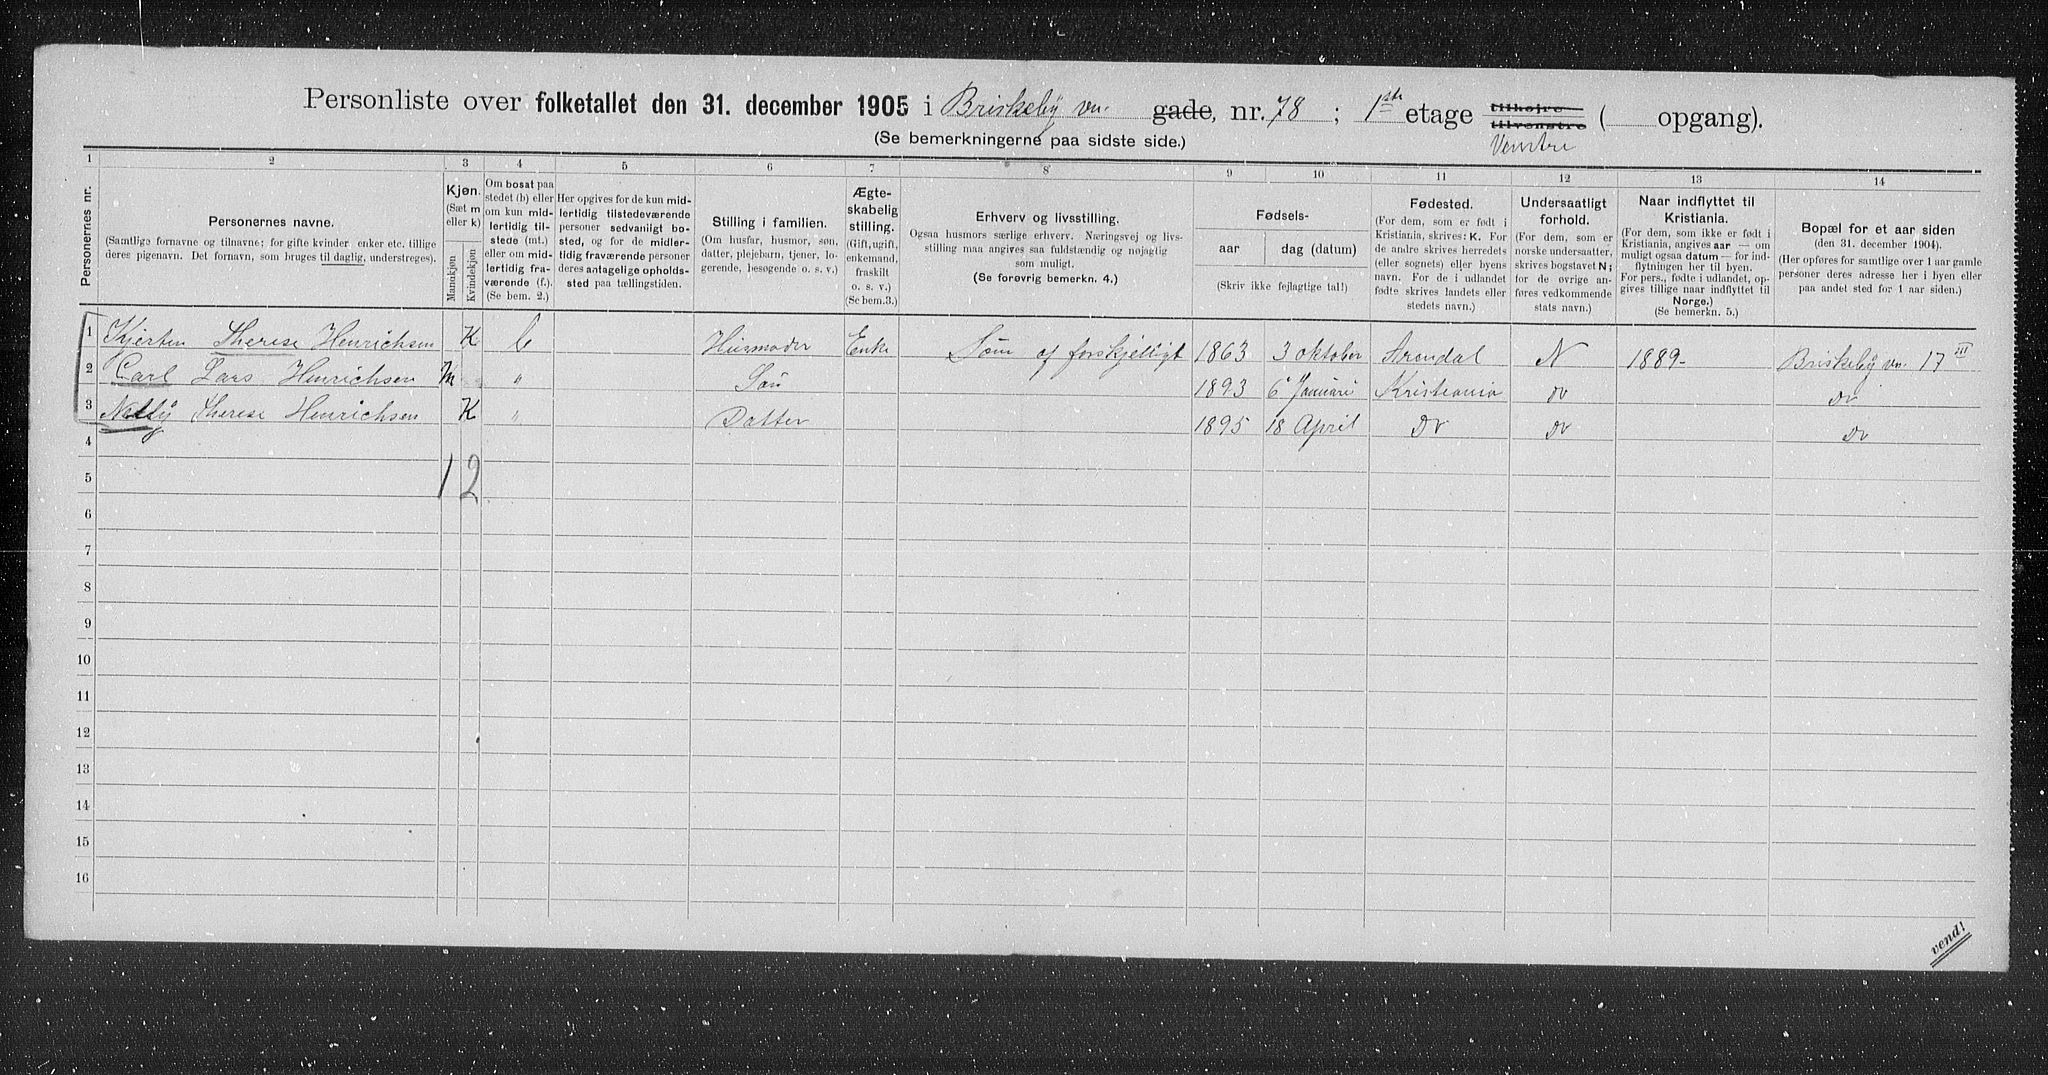 Personliste over folketallet den 31. december 1905 i Briskeby vn. gade, nr. 78 ; 1ste etage tilhøjre tilvenstre ( opgang).
Venstre
(Se bemerkningerne paa sidste side.)
1 2 3 4 5 6 7 8 9 10 11 12 13 14
Personernes nr.
Personernes navne.
(Samtlige fornavne og tilnavne; for gifte kvinder, enker etc. tillige
deres pigenavn. Det fornavn, som bruges til daglig, understreges).
Kjøn.
(Sæt m
eller k)
Mandkjøn
Kvindekjøn
Om bosat paa
stedet (b) eller
om kun mid-
lertidig til-
stede (mt.)
eller om mid-
lertidig fra-
værende (f.).
(Se bem. 2.)
Her opgives for de kun mid-
lertidig tilstedeværende
personer sedvanligt bo-
sted, og for de midler-
tidig fraværende personer
deres antagelige opholds-
sted paa tællingstiden.
Stilling i familien.
(Om husfar, husmor, søn,
datter, plejebarn, tjener, lo-
gerende, besøgende o. s. v.)
Ægte-
skabelig
stilling.
(Gift, ugift,
enkemand,
fraskilt
o. s. v.)
(Se bem.3.)
Erhverv og livsstilling.
Ogsaa husmors særlige erhverv. Næringsvej og livs-
stilling maa angives saa fuldstændig og nøjagtig
som muligt.
(Se forøvrig bemerkn. 4.)
Fødsels-
aar dag (datum)
(Skriv ikke fejlagtige tal!)
Fødested.
(For dem, som er født i
Kristiania, skrives: K. For
de andre skrives herredets
(eller sognets) eller byens
navn. For de i udlandet
fødte skrives landets eller
stedets navn.)
Undersaatligt
forhold.
(For dem, som er
norske undersaatter,
skrives bogstavet N;
for de øvrige an-
føres vedkommende
stats navn.)
Naar indflyttet til
Kristiania.
(For dem, som ikke er født i
Kristiania, angives aar — om
muligt ogsaa datum — for ind-
flytningen her til byen.
For pers., fødte i udlandet, op-
gives tillige naar indflyttet til
Norge.)
(Se bemerkn. 5.)
Bopæl for et aar siden
(den 31. december 1904).
(Her opføres for samtlige over 1 aar gamle
personer deres adresse her i byen eller
paa andet sted for 1 aar siden.)
1 Kjersten Therese Henrichsen K b Husmoder Enke Søm af forskjelligt 1863 3 oktober Arendal N 1889- Briskeby vn. 17 III
2 Carl Lars Henrichsen M " Søn 1893 6 Januari Kristiania Do Do
3 Nelly Therese Henrichsen K " Datter 1895 18 April Do Do Do
4
5 1 2
6
7
8
9
10
11
12
13
14
15
16
vend!